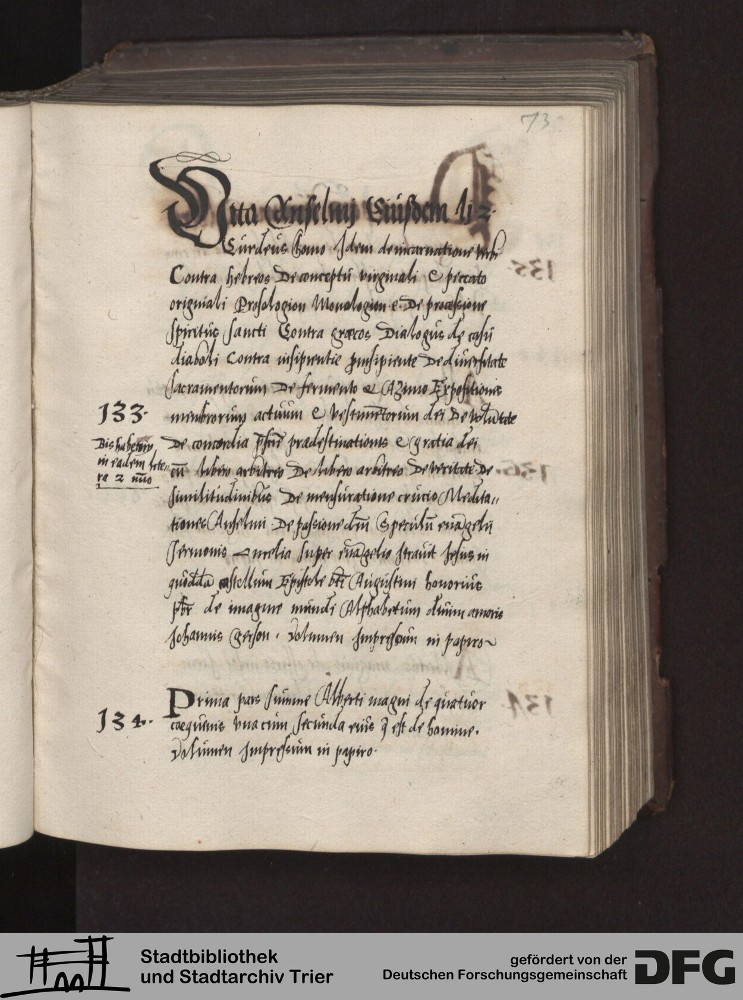 73
Vita Anselmi Eiusdem li 2.
Cur deus homo Idem de incarnatione verbi
Contra hebreos De conceptu virginali & peccato
originali Prosologion Monologion & De processione
spiritus sancti Contra græcos Dialogus de casu
diaboli Contra insipientie insipiente De diuersitate
sacramentorum De fermento & Azimo Expositionis
133. membrorum actuum & vestimentorum dei De volutate
De concordia pradestinationis & gratia dei
Bis habetur
in eadem lite=
ra 2 nuo
cu libero arbitrio De libero arbitrio De veritate De
similitudinibus De mensuratione crucis Medita,,
tiones Anselmi De passione Speculu euagelij
Sermonis super euagelio Intrauit Jesus in
quodda castellum Epistole Augustini honorius
de imagine mundi Alphabetum diuini amoris
Johannis Gerson. Volumen Impressum in papiro
134. Prima pars summe Alberti magni de quatuor
coequeuis vna cum secunda eius q est de homine.
Volumen Impressum in papiro.
Stadtbibliothek
und Stadtarchiv Trier
gefördert von der
Deutschen Forschungsgemeinschaft
DFG